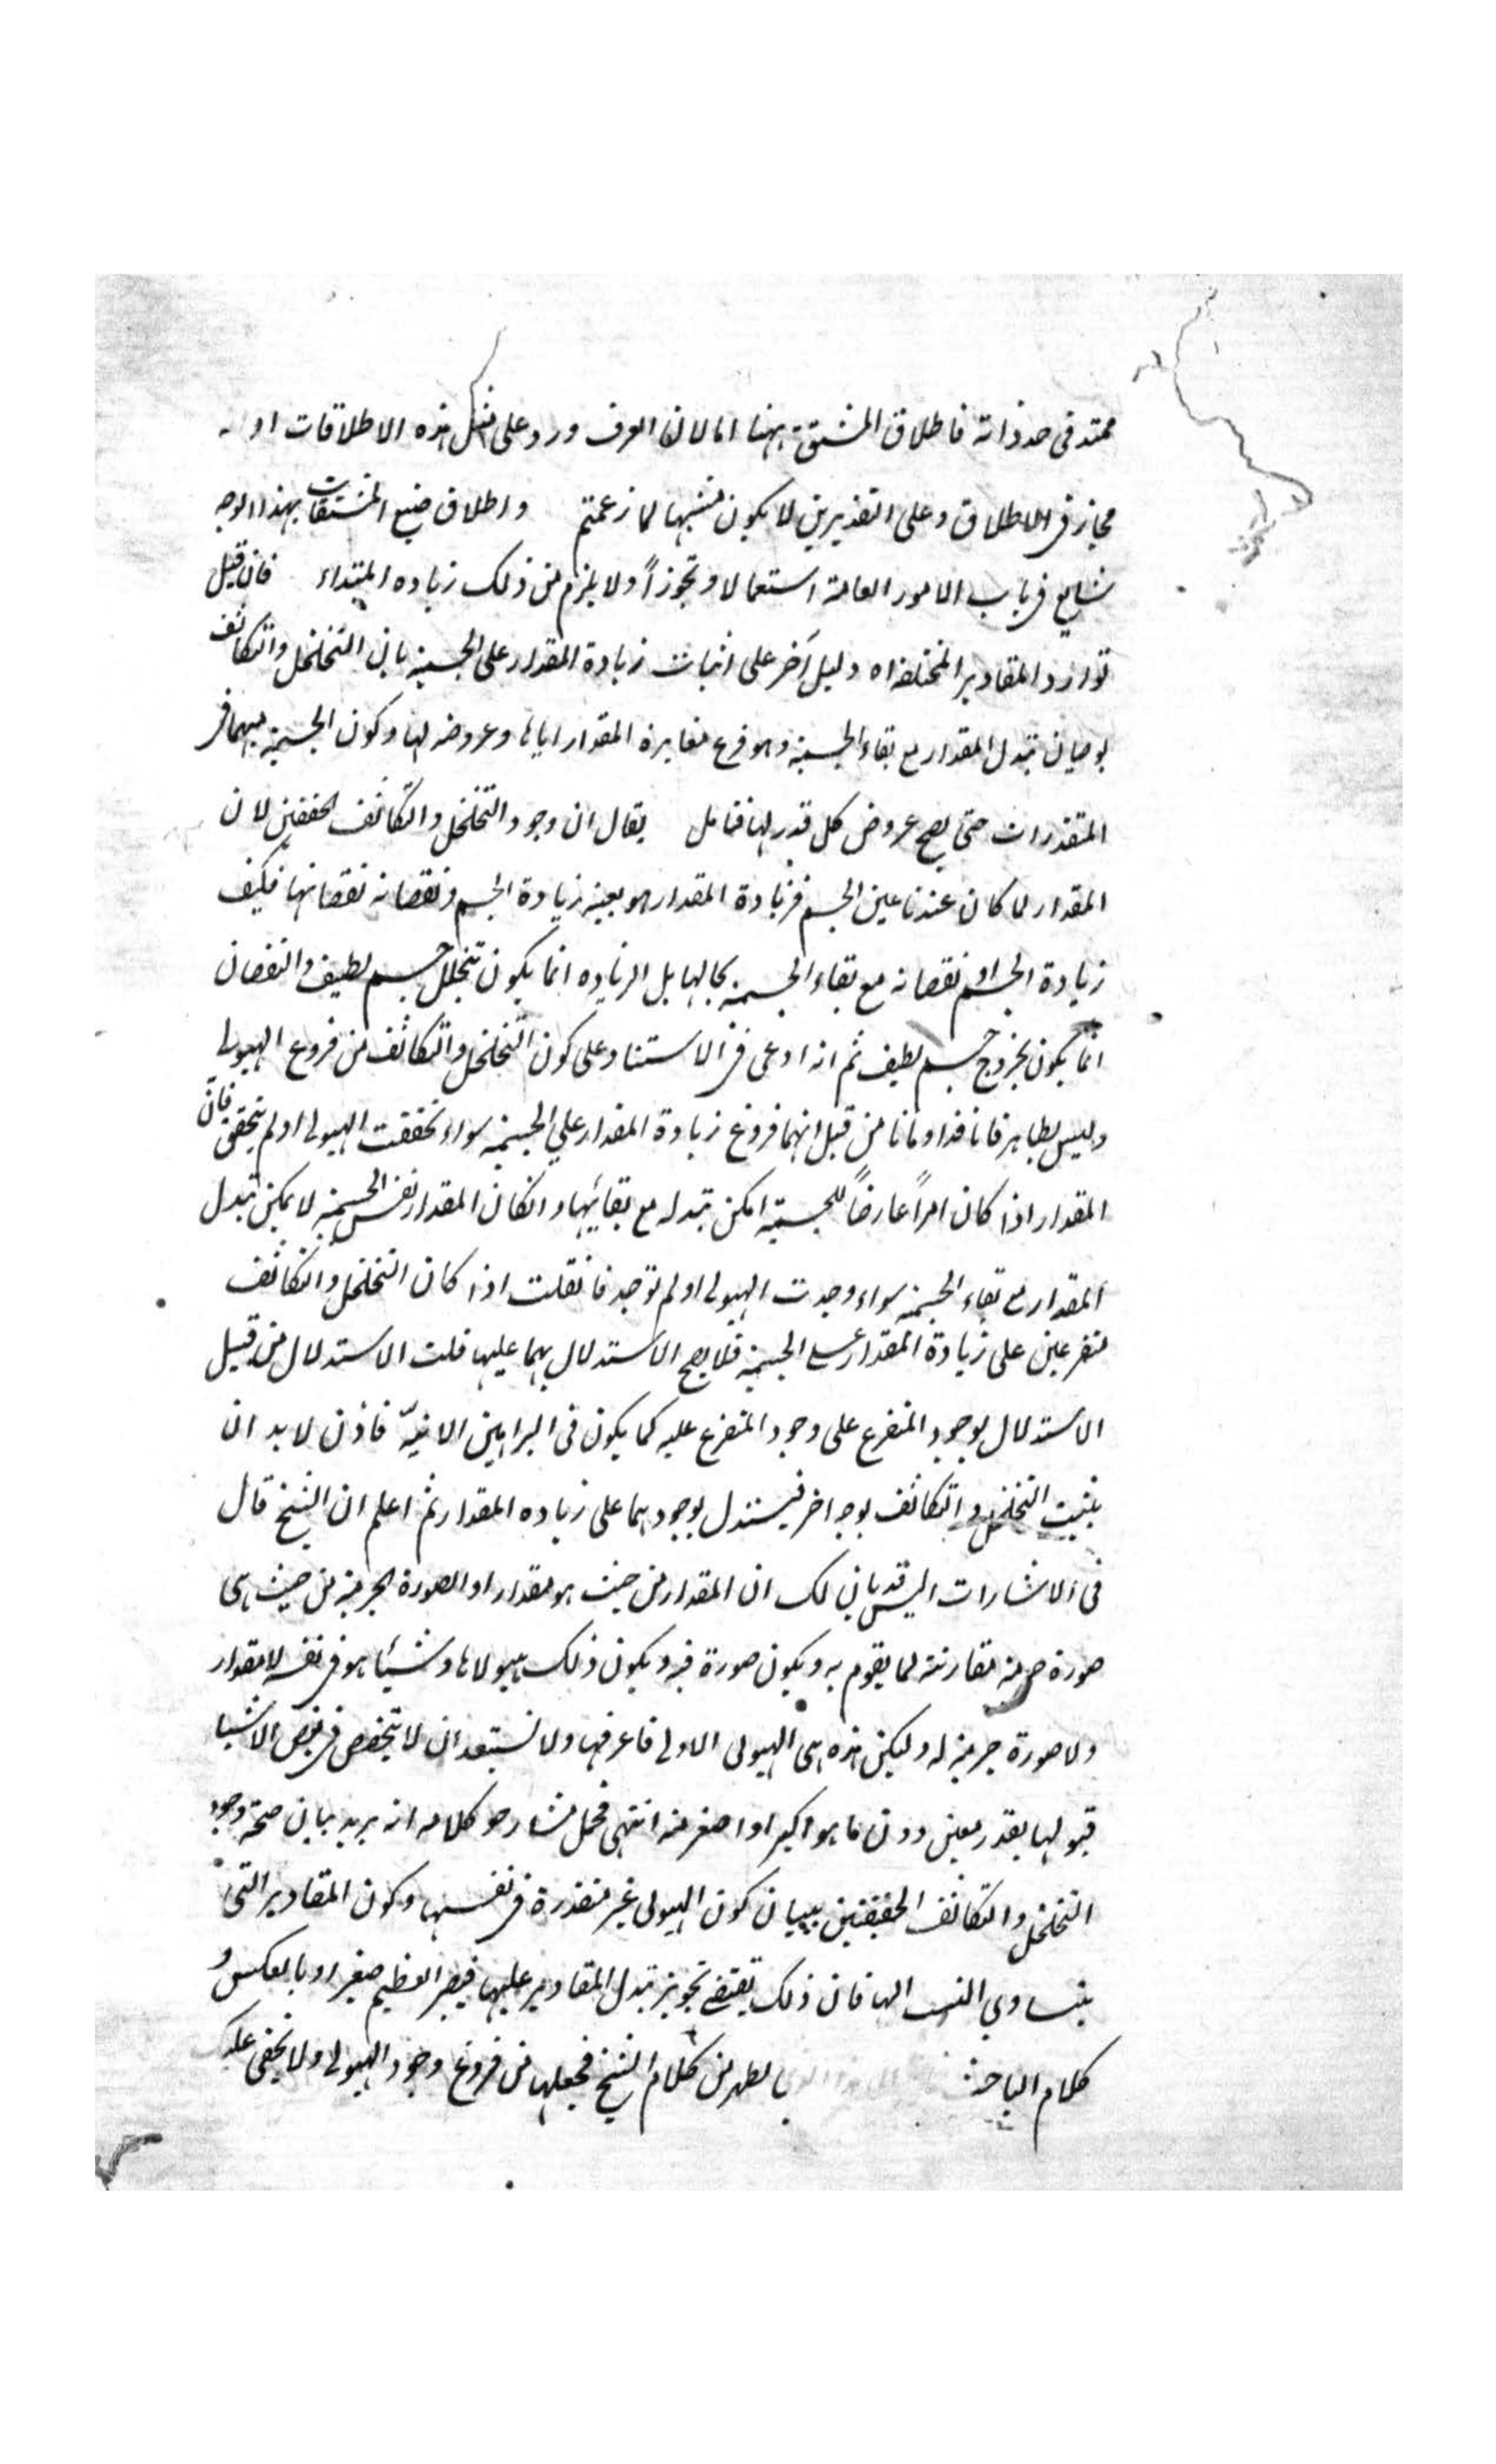 ممتد فى حد ذاته فاطلاق المشتق ههنا اما لان العرف ورد على مثل هذه الاطلاقات او
مجاز فى الاطلاق وعلى التقديرين لا يكون مشبها لما زعمتم واطلاق صيغ المشتقات بهذا الوجه
شايع فى باب الامور العامة استعمالا وتجوزاً ولا يلزم من ذلك زياده المبتداء فان قيل
توارد المقادير المختلفه اه دليل آخر على اثبات زيادة المقدار على الجسمية بان التخلخل والتكاثف
يوجبان تبدل المقدار مع بقاء الجسمية وهو فرع مغايرة المقدار اياها وعروضه لها وكون الجسمية مبهما فى
المتقدرات حتى يصح عروض كل قدر لها فتامل يقال ان وجود التخلخل والتكاثف لان
المقدار لما كان عندنا عين الجسم فزيادة المقدار هو بعينه زيادة الجسم ونقصانه نقصانها فكيف
زيادة الجسم او نقصانه مع بقاء الجسمية بحالها بل الزياده انما يكون بتخلل جسم لطيف والنقصان
انما يكون بخروج جسم لطيف ثم انه ادعى فى الاستناد على كون التخلخل والتكاثف من فروع الهيولى
وليس بظاهر فانا قد اومانا من قبل انهما فروع زيادة المقدار على الجسمية سواء تحققت الهيولى او لم يتحقق فان
المقدار اذا كان امراً عارضاً للجسمية امكن تبدله مع بقائها وانكان المقدار نفس الجسمية لا يمكن تبدل
المقدار مع بقاء الجسمية سواء وجدت الهيولى او لم توجد فانقلت اذا كان التخلخل والتكاثف
متفرعين على زيادة المقدار على الجسمية فلا يصح الاستدلال بهما عليها قلت الاستدلال من قبيل
الاستدلال بوجود المتفرع على وجود المتفرع عليه كما يكون فى البراهين الانيّه فاذن لا بد ان
يثبت التخلخل والتكاثف بوجه اخر فيستدل بوجودهما على زياده المقدار ثم اعلم ان الشيخ قال
فى الاشارات اليس قد بان لك ان المقدار من حيث هو مقدار او الصورة الجرمية من حيث هى
صورة جرمية مقارنة لما يقوم به ويكون صورة فيه ويكون ذلك هيولاها وشيئا هو فى نفسه لا مقدار
ولا صورة جرمية له وليكن هذه هى الهيولى الاولى فاعرفها ولا تستبعد ان لا يتخصص فى بعض الاشيا
قبولها بقدر معين دون ما هو اكبر او اصغر منه انتهى فحمل شارحو كلامه انه يريد بيان صحة وجود
التخلخل والتكاثف الحقيقتين ببيان كون الهيولى غير متقدرة فى نفسها وكون المقادير التى
يتساوى النسب اليها فان ذلك يقتضى تجويز تبدل المقادير عليها فيصير العظيم صغيرا وبالعكس و
كلام الباحث يظهر من كلام الشيخ فجعلها من فروع وجود الهيولى ولا يخفى عليك